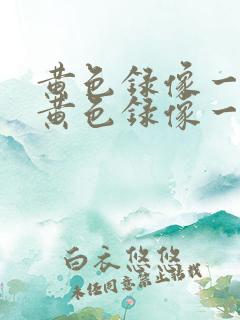 黄色録像一
黄色録像一
白衣悠悠
未经同意禁止转载